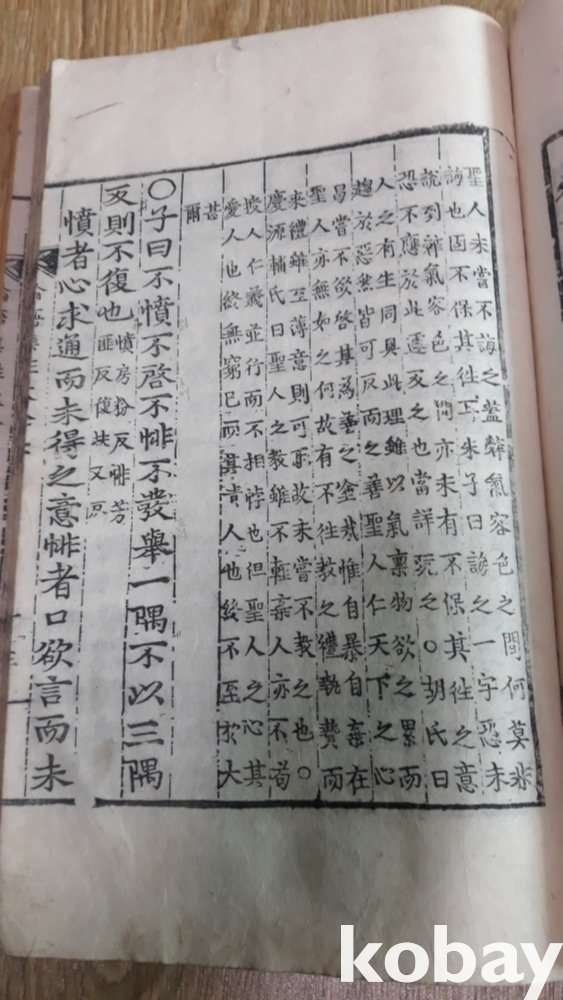 聖人未嘗不誨之蓋辭氣容色之間何莫非
誨也固不保其往耳朱子曰誨之一字恐未
說到辭氣容色之間亦未有不保其往之意
恐不應於此遽及之也當詳玩之○胡氏曰
人之有生同具此理雖以氣稟物欲之累而
趨於惡然皆可反而之善聖人仁天下之心
曷嘗不欲啓其爲善之塗哉惟自暴自棄在
聖人亦無如之何故有不往敎之禮執贄而
來禮雖至薄意則可取故未嘗不敎之也○
慶源輔氏曰聖人之敎雖不輕棄人亦不苟
授人仁義並行而不相悖也但聖人之心其
愛人也欲無窮已而其責人也終不至於大
甚
爾
○子曰不憤不啓不悱不發舉一隅不以三隅
反則不復也
憤房粉反悱芳
匪反復扶又反
憤者心求通而未得之意悱者口欲言而未
kobay